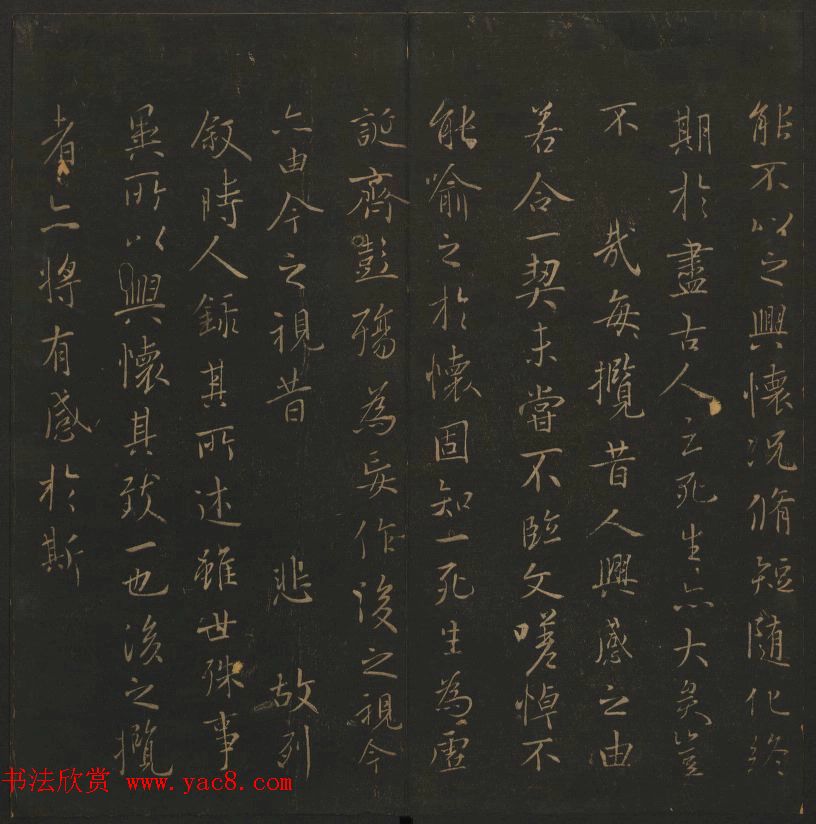 能不以之興懷況脩短随化終
期於盡古人云死生亦大矣豈
不 哉每攬昔人興感之由
若合一契未嘗不臨文嗟悼不
能喻之於懷固知一死生為虛
誕齊彭殤為妄作後之視今
亦由今之視昔 悲 故列
叙時人錄其所述雖世殊事
異所以興懷其致一也後之攬
者亦將有感於斯
书法欣赏 www.yac8.com